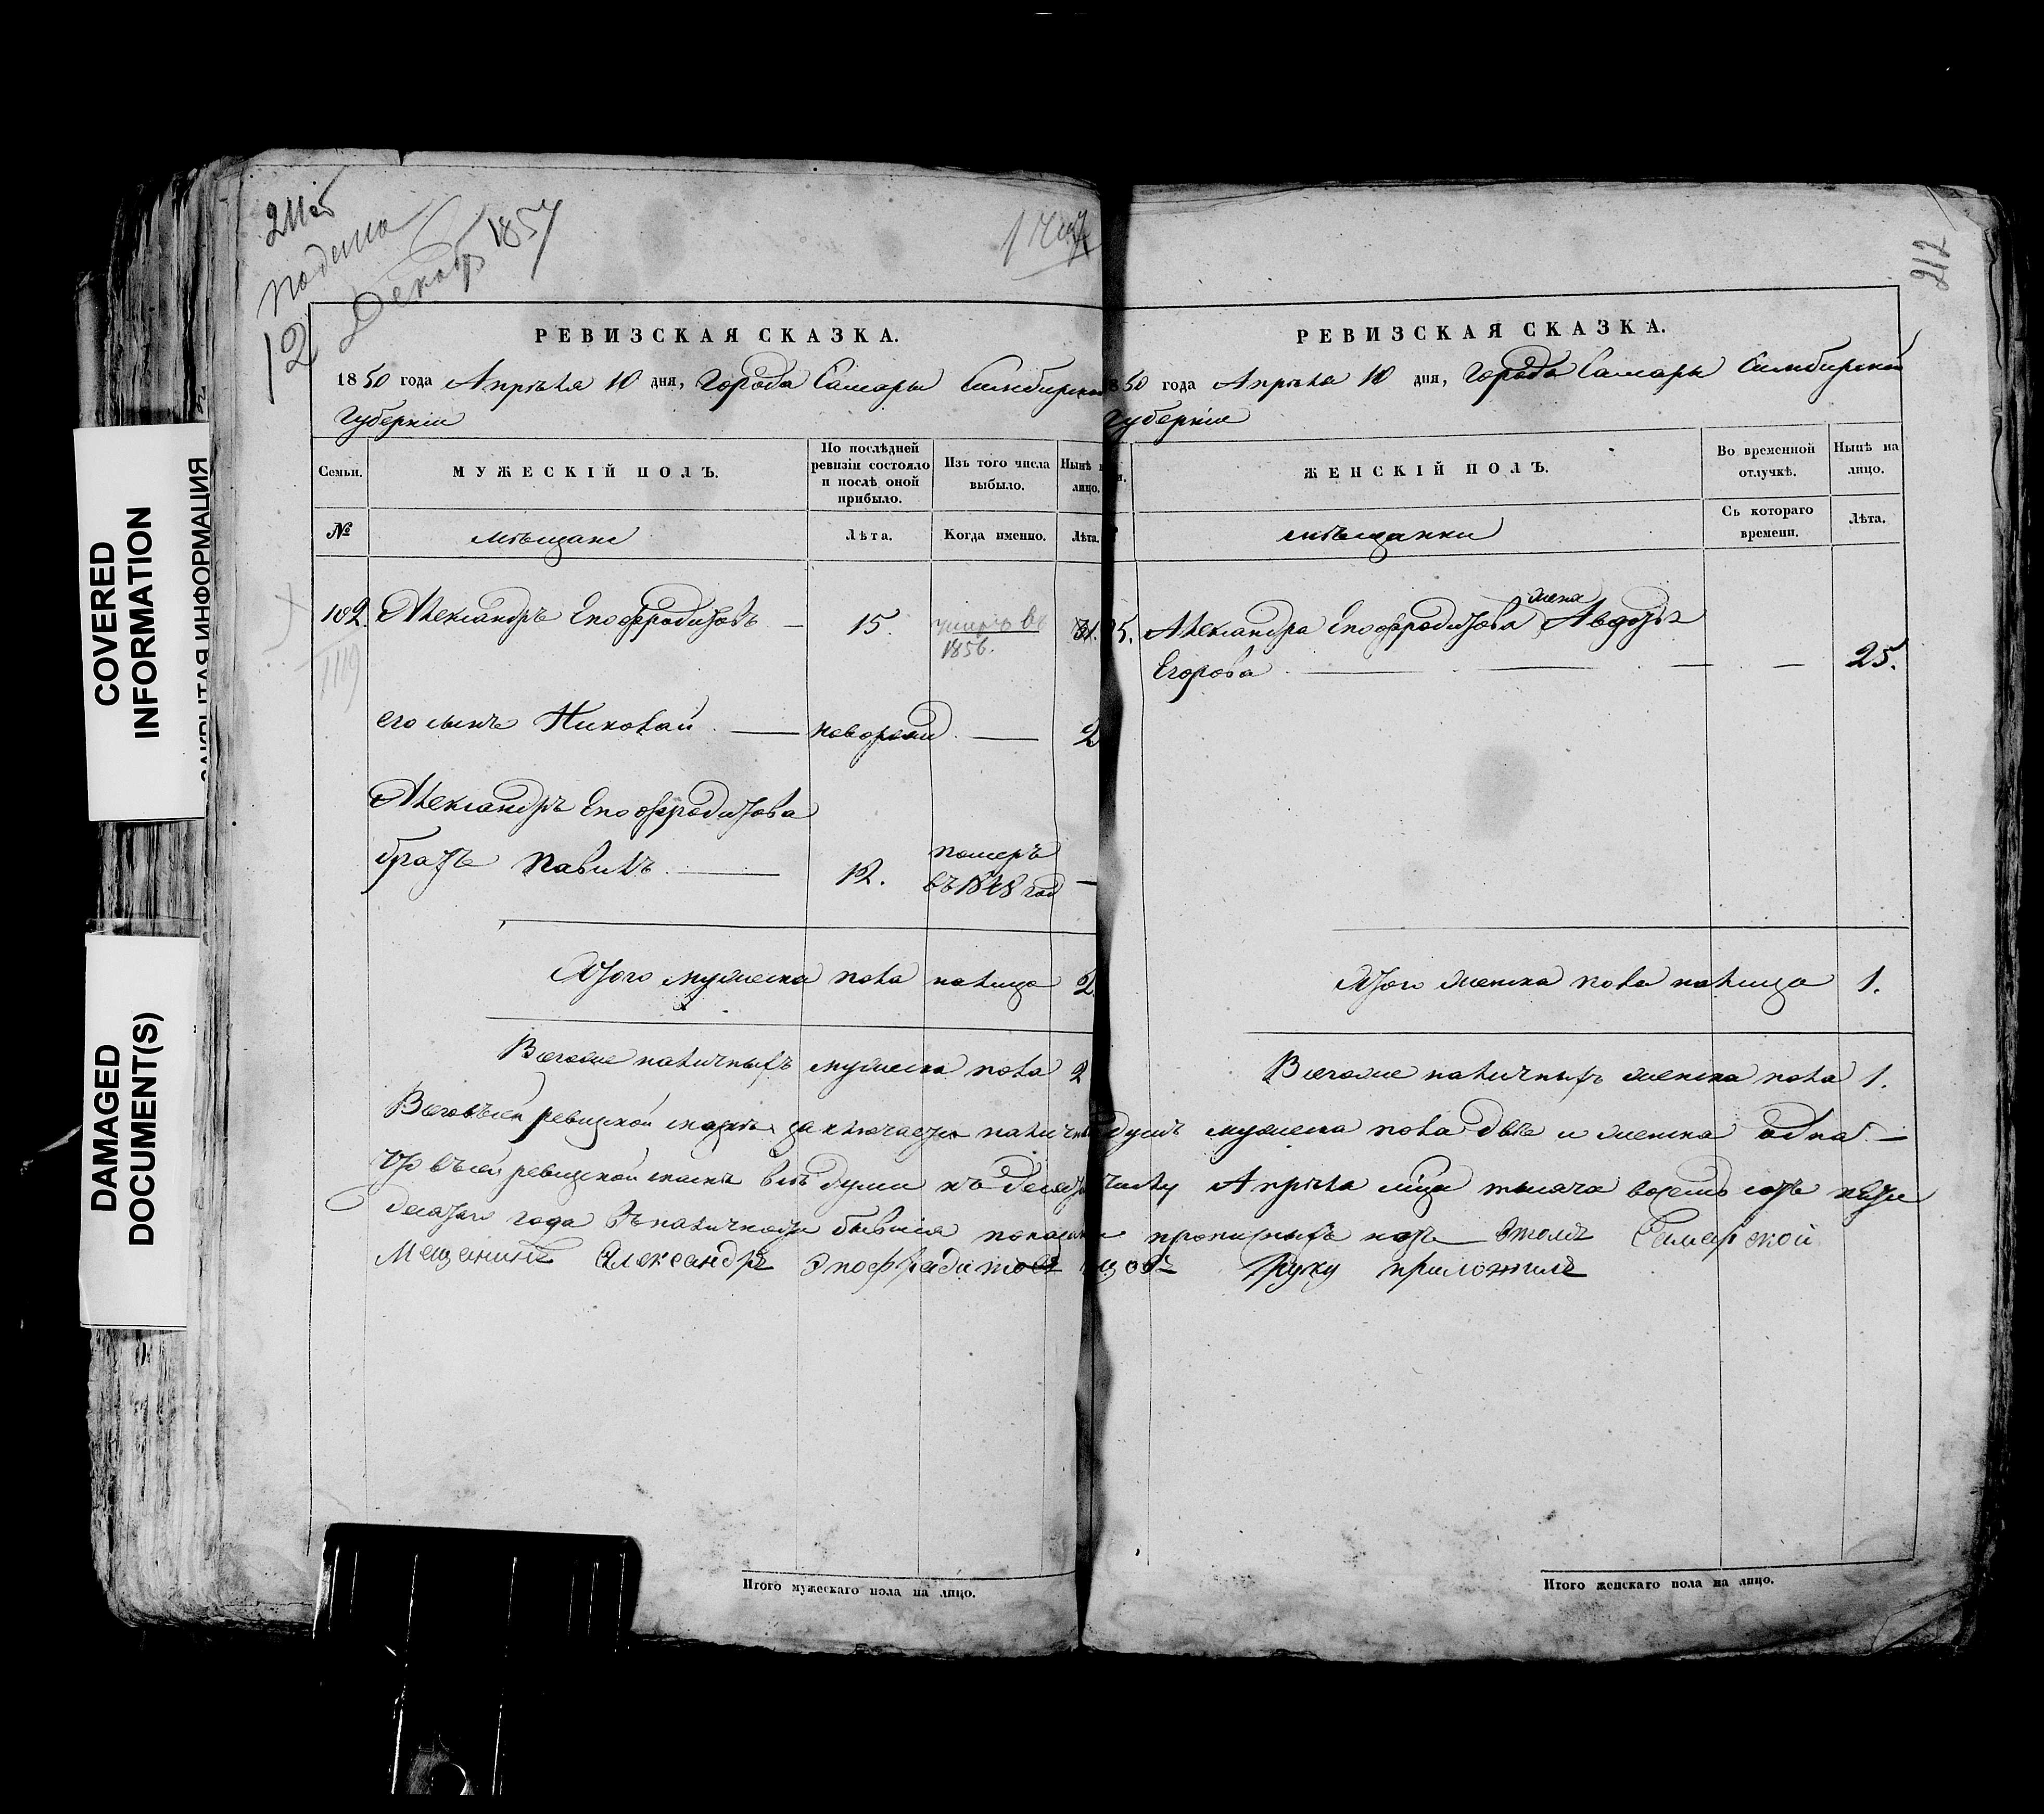 COVERED
INFORMATION
ЗАКРЫТАЯ ИНФОРМАЦИЯ
DAMAGED
DOCUMENT(S)
подана
12 Декабр 1857
РЕВИЗСКАЯ СКАЗКА.
1850 года Апрѣля 10 дня, Города Самары Симбирской
Губерніи
Семьи.
МУЖЕСКІЙ ПОЛЪ.
По послѣдней
ревизіи состояло
и послѣ оной
прибыло.
Изъ того числа
выбыло.
Нынѣ н
лицо.
№
мѣщане
Лѣта.
Когда именно.
Лѣта.
102. Александръ Епофродитовъ — 15. умеръ въ 31.
1856.
1119
его сынъ Николай — новорожд — 2
Александръ Епофродитова
братъ Павилъ — 12. померъ —
въ 1848 год
Итого мужеска пола налицо 2
Всегоже наличныхъ мужеска пола 2
212
РЕВИЗСКАЯ СКАЗКА.
1850 года Апрѣля 10 дня, Города Самары Симбирской
Губерніи
ЖЕНСКІЙ ПОЛЪ.
Во временной
отлучкѣ.
Нынѣ на
лицо.
мѣщанки
Съ котораго
времени.
Лѣта.
жена
Александра Епофродитова Авдотья
Егорова — — — — 25.
Итого женска пола налицо 1.
Всегоже наличныхъ женска пола 1.
Всего въсей ревизской сказкѣ заключается наличн душъ мужеска пола двѣ и женска одна —
Что въсей ревизской сказкѣ всѣ души къ десятому числу Апрѣля мца тысяча восемь сотъ пяти
десятаго года въ наличности бывшія показаны и прописныхъ нѣтъ — втомъ Самарской
Мещенинъ Александръ Эпоффрадитов руку приложилъ
Итого мужескаго пола на лицо.
Итого женскаго пола на лицо.